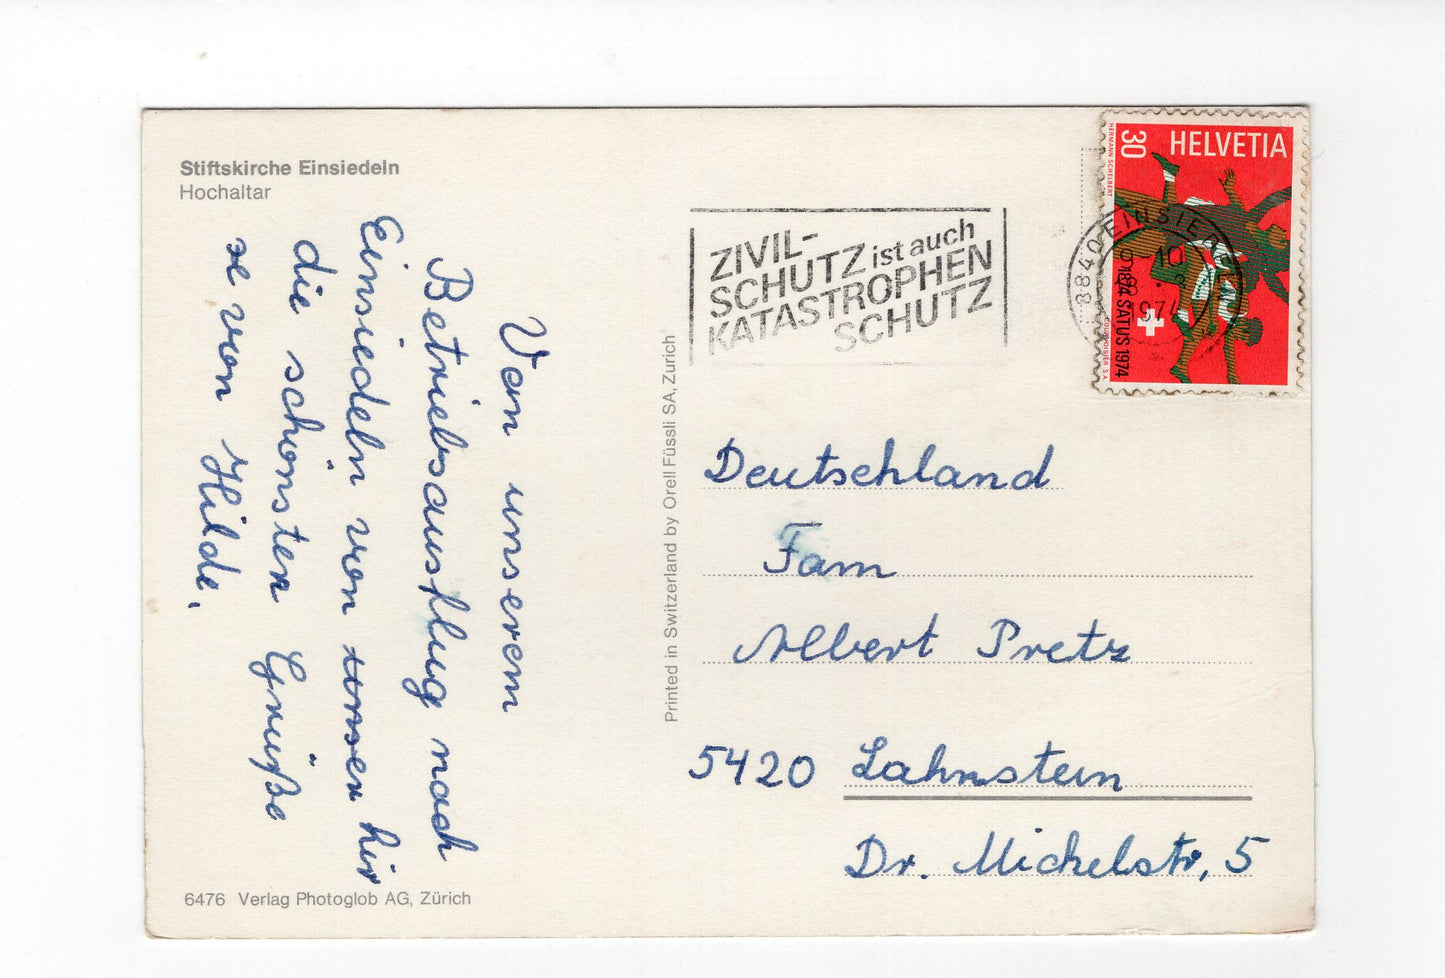 Stiftskirche Einsiedeln
Hochaltar
Von unserem
Betriebsausflug nach
Einsiedeln von unser hir
die schönsten Grüße
se von Hilde.
6476 Verlag Photoglob AG, Zürich
Printed in Switzerland by Orell Füssli SA, Zurich
ZIVIL-
SCHUTZ ist auch
KATASTROPHEN
SCHUTZ
HELVETIA
30
HERMANN SCHELBERT
1874 SATUS 1974
COURVOISIER S.A.
8840 EINSIEDELN
Deutschland
Fam
Albert Pretz
5420 Lahnstein
Dr. Michelstr, 5